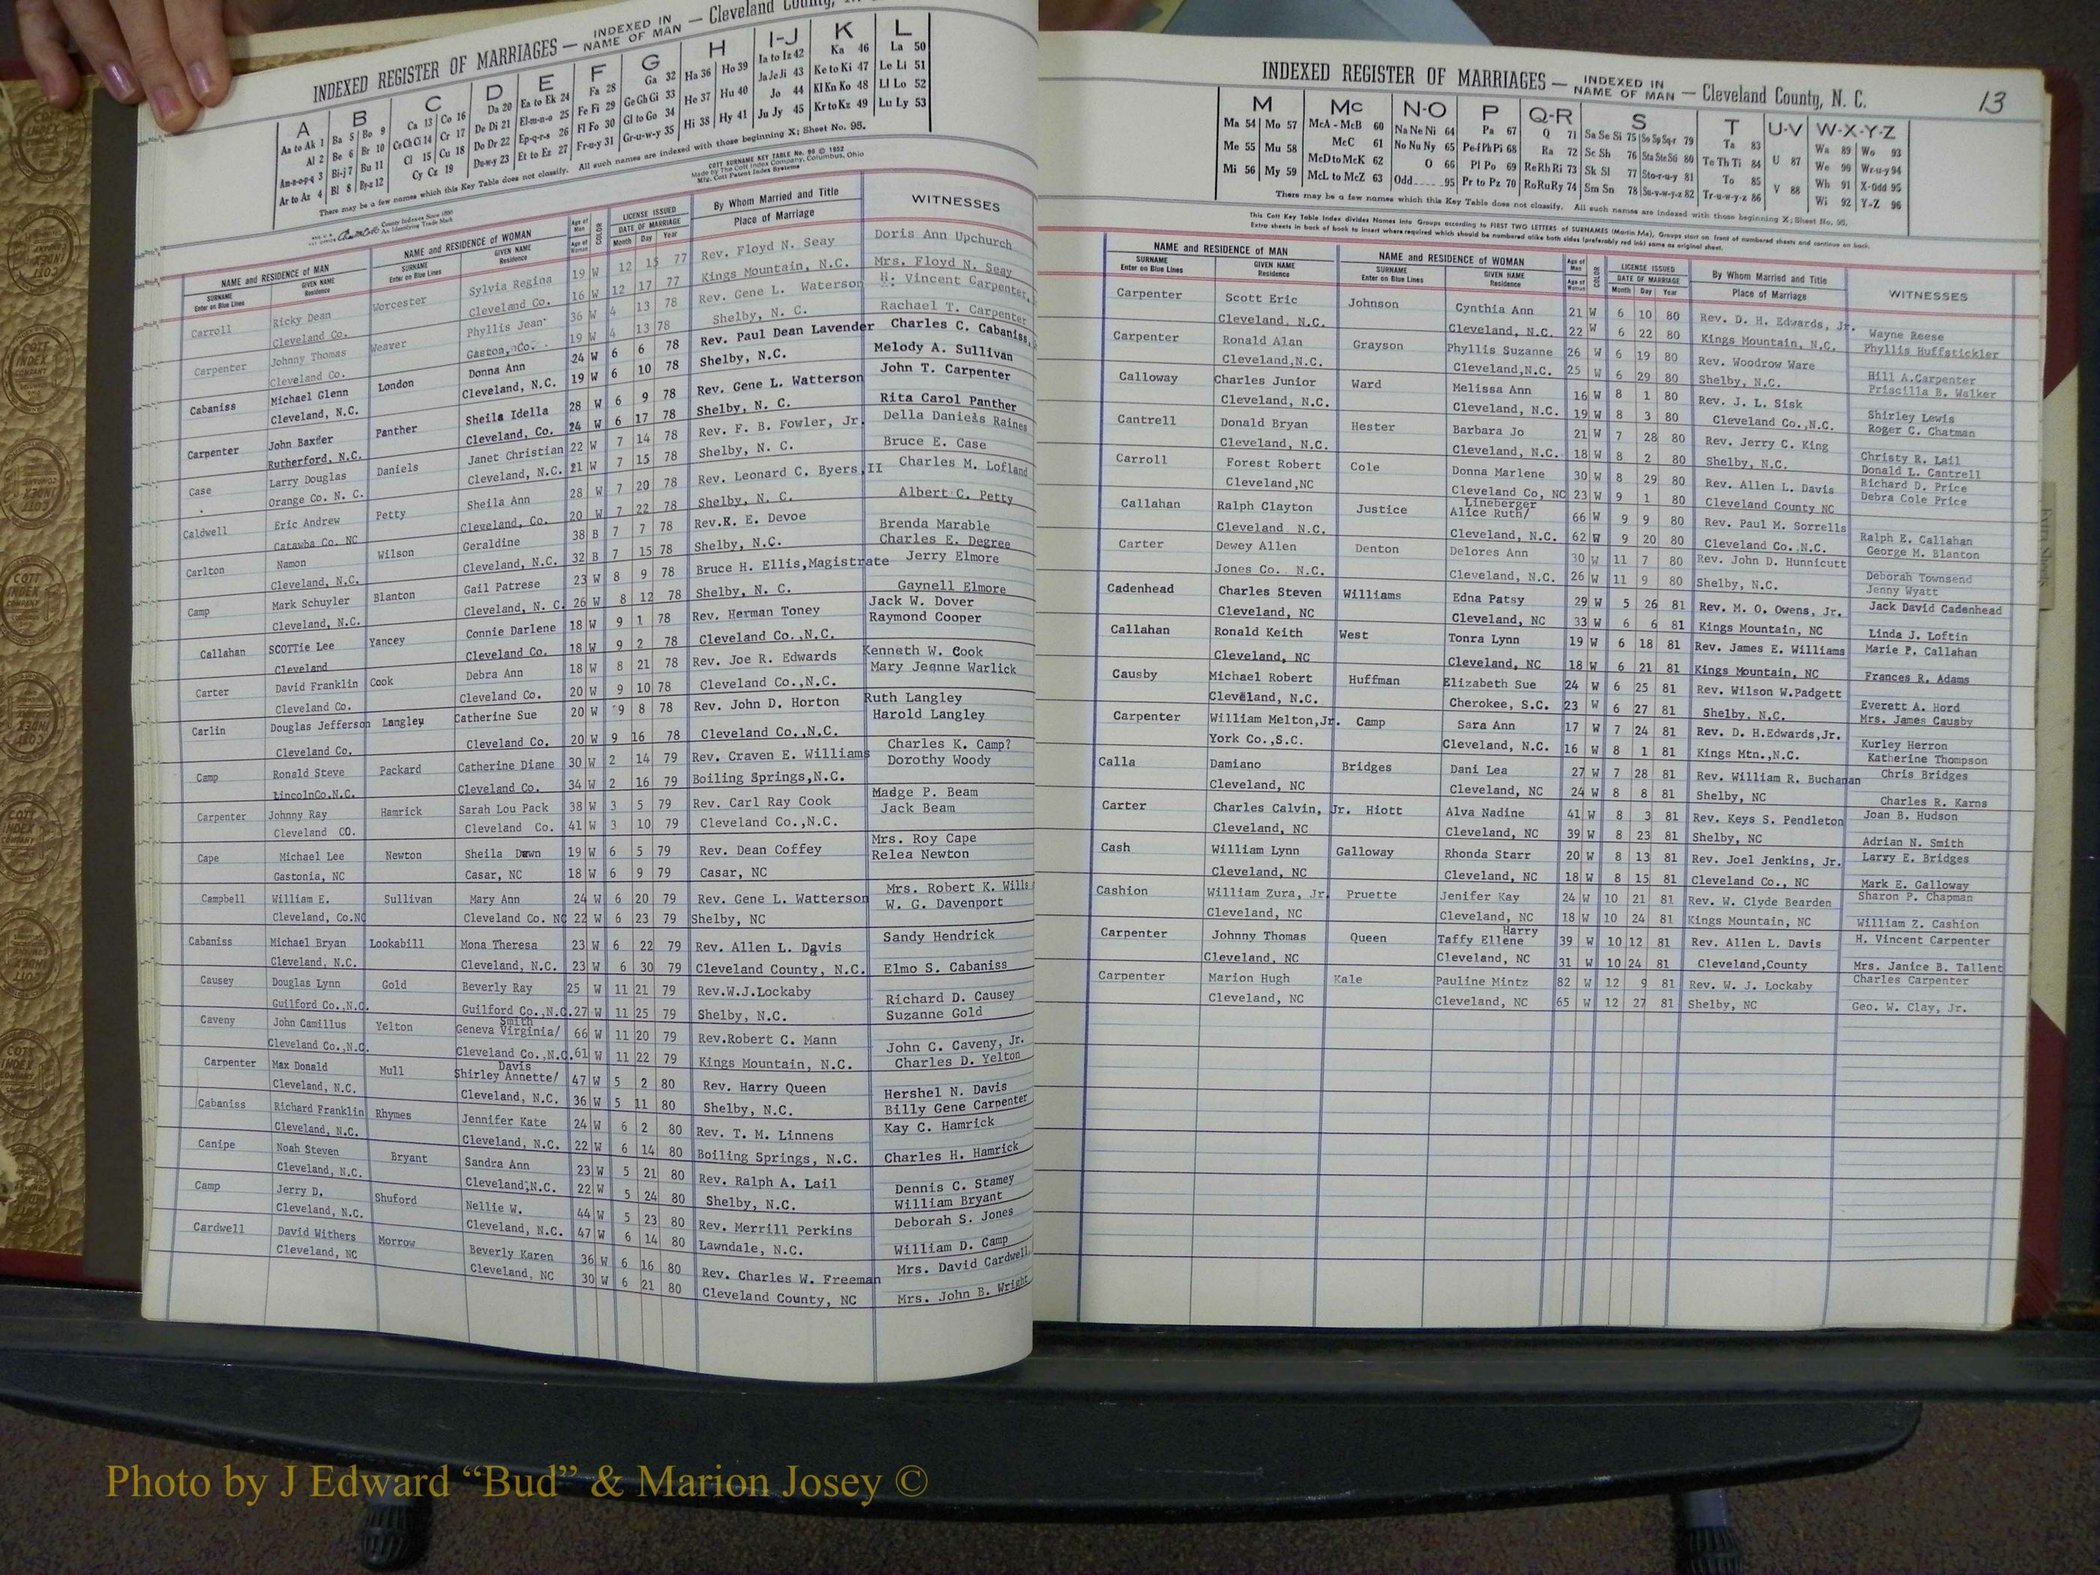 INDEXED REGISTER OF MARRIAGES — INDEXED IN NAME OF MAN — Cleveland County,
A B C D E F G H I-J K L
Aa to Ak 1 Ba 5 Bo 9 Ca 13 Co 16 Da 20 Ea to Ek 24 Fa 28 Ga 32 Ha 36 Ho 39 Ia to Iz 42 Ka 46 La 50
Al 2 Be 6 Br 10 Ce Ch Ci 14 Cr 17 De Di 21 El-m-n-o 25 Fe Fi 29 Ge Gh Gi 33 He 37 Hu 40 Ja Je Ji 43 Ke to Ki 47 Le Li 51
An-n-o-p-q 3 Bi-j 7 Bu 11 Cl 15 Cu 18 Do Dr 22 Ep-q-r-s 26 Fl Fo 30 Gl to Go 34 Hi 38 Hy 41 Jo 44 Kl Kn Ko 48 Ll Lo 52
Ar to Az 4 Bl 8 By-z 12 Cy Cz 19 Du-w-y 23 Et to Ez 27 Fr-u-y 31 Gr-u-w-y 35 Ju Jy 45 Kr to Kz 49 Lu Ly 53
There may be a few names which this Key Table does not classify. All such names are indexed with those beginning X; Sheet No. 95.
COTT SURNAME KEY TABLE No. 96 © 1952
Made by The Cott Index Company, Columbus, Ohio
NAME and RESIDENCE of MAN NAME and RESIDENCE of WOMAN Age of Man Age of Woman COLOR LICENSE ISSUED DATE OF MARRIAGE By Whom Married and Title Place of Marriage WITNESSES
SURNAME Enter on Blue Lines GIVEN NAME Residence SURNAME Enter on Blue Lines GIVEN NAME Residence Month Day Year
Carroll Ricky Dean Worcester Sylvia Regina 19 W 12 15 77 Rev. Floyd N. Seay Doris Ann Upchurch
Cleveland Co. Cleveland Co. 16 W 12 17 77 Kings Mountain, N.C. Mrs. Floyd N. Seay
Carpenter Johnny Thomas Weaver Phyllis Jean 36 W 4 13 78 Rev. Gene L. Waterson H. Vincent Carpenter
Cleveland Co. Gaston, Co. 19 W 4 13 78 Shelby, N. C. Rachael T. Carpenter
Cabaniss Michael Glenn London Donna Ann 24 W 6 6 78 Rev. Paul Dean Lavender Charles C. Cabaniss,
Cleveland, N.C. Cleveland, N.C. 19 W 6 10 78 Shelby, N.C. Melody A. Sullivan
Carpenter John Baxter Panther Sheila Idella 28 W 6 9 78 Rev. Gene L. Watterson John T. Carpenter
Rutherford, N.C. Cleveland, Co. 24 W 6 17 78 Shelby, N. C. Rita Carol Panther
Case Larry Douglas Daniels Janet Christian 22 W 7 14 78 Rev. F. B. Fowler, Jr. Della Daniels Raines
Orange Co. N. C. Cleveland, N.C. 21 W 7 15 78 Shelby, N. C. Bruce E. Case
Caldwell Eric Andrew Petty Sheila Ann 28 W 7 20 78 Rev. Leonard C. Byers,II Charles M. Lofland
Catawba Co. NC Cleveland, Co. 20 W 7 22 78 Shelby, N. C. Albert C. Petty
Carlton Namon Wilson Geraldine 38 B 7 7 78 Rev.R. E. Devoe Brenda Marable
Cleveland, N.C. Cleveland, N.C. 32 B 7 15 78 Shelby, N.C. Charles E. Degree
Camp Mark Schuyler Blanton Gail Patrese 23 W 8 9 78 Bruce H. Ellis,Magistrate Jerry Elmore
Cleveland, N.C. Cleveland, N. C. 26 W 8 12 78 Shelby, N. C. Gaynell Elmore
Callahan SCOTTie Lee Yancey Connie Darlene 18 W 9 1 78 Rev. Herman Toney Jack W. Dover
Cleveland Cleveland Co. 18 W 9 2 78 Cleveland Co.,N.C. Raymond Cooper
Carter David Franklin Cook Debra Ann 18 W 8 21 78 Rev. Joe R. Edwards Kenneth W. Cook
Cleveland Co. Cleveland Co. 20 W 9 10 78 Cleveland Co.,N.C. Mary Jeanne Warlick
Carlin Douglas Jefferson Langley Catherine Sue 20 W 9 8 78 Rev. John D. Horton Ruth Langley
Cleveland Co. Cleveland Co. 20 W 9 16 78 Cleveland Co.,N.C. Harold Langley
Camp Ronald Steve Packard Catherine Diane 30 W 2 14 79 Rev. Craven E. Williams Charles K. Camp?
LincolnCo.N.C. Cleveland Co. 34 W 2 16 79 Boiling Springs,N.C. Dorothy Woody
Carpenter Johnny Ray Hamrick Sarah Lou Pack 38 W 3 5 79 Rev. Carl Ray Cook Madge P. Beam
Cleveland CO. Cleveland Co. 41 W 3 10 79 Cleveland Co.,N.C. Jack Beam
Cape Michael Lee Newton Sheila Dawn 19 W 6 5 79 Rev. Dean Coffey Mrs. Roy Cape
Gastonia, NC Casar, NC 18 W 6 9 79 Casar, NC Relea Newton
Campbell William E. Sullivan Mary Ann 24 W 6 20 79 Rev. Gene L. Watterson Mrs. Robert K. Wills
Cleveland, Co.NC Cleveland Co. NC 22 W 6 23 79 Shelby, NC W. G. Davenport
Cabaniss Michael Bryan Lookabill Mona Theresa 23 W 6 22 79 Rev. Allen L. Davis Sandy Hendrick
Cleveland, N.C. Cleveland, N.C. 23 W 6 30 79 Cleveland County, N.C. Elmo S. Cabaniss
Causey Douglas Lynn Gold Beverly Ray 25 W 11 21 79 Rev.W.J.Lockaby Richard D. Causey
Guilford Co.,N.C. Guilford Co.,N.C. 27 W 11 25 79 Shelby, N.C. Suzanne Gold
Caveny John Camillus Yelton Smith Geneva Virginia/ 66 W 11 20 79 Rev.Robert C. Mann John C. Caveny, Jr.
Cleveland Co.,N.C. Cleveland Co.,N.C. 61 W 11 22 79 Kings Mountain, N.C. Charles D. Yelton
Carpenter Max Donald Mull Davis Shirley Annette/ 47 W 5 2 80 Rev. Harry Queen Hershel N. Davis
Cleveland, N.C. Cleveland, N.C. 36 W 5 11 80 Shelby, N.C. Billy Gene Carpenter
Cabaniss Richard Franklin Rhymes Jennifer Kate 24 W 6 2 80 Rev. T. M. Linnens Kay C. Hamrick
Cleveland, N.C. Cleveland, N.C. 22 W 6 14 80 Boiling Springs, N.C. Charles H. Hamrick
Canipe Noah Steven Bryant Sandra Ann 23 W 5 21 80 Rev. Ralph A. Lail Dennis C. Stamey
Cleveland, N.C. Cleveland,N.C. 22 W 5 24 80 Shelby, N.C. William Bryant
Camp Jerry D. Shuford Nellie W. 44 W 5 23 80 Rev. Merrill Perkins Deborah S. Jones
Cleveland, N.C. Cleveland, N.C. 47 W 6 14 80 Lawndale, N.C. William D. Camp
Cardwell David Withers Morrow Beverly Karen 36 W 6 16 80 Rev. Charles W. Freeman Mrs. David Cardwell,
Cleveland, NC Cleveland, NC 30 W 6 21 80 Cleveland County, NC Mrs. John B. Wright
INDEXED REGISTER OF MARRIAGES — INDEXED IN NAME OF MAN — Cleveland County, N. C. 13
M Mc N-O P Q-R S T U-V W-X-Y-Z
Ma 54 Mo 57 McA - McB 60 Na Ne Ni 64 Pa 67 Q 71 Sa Se Si 75 So Sp Sq-r 79 Ta 83 U 87 Wa 89 Wo 93
Me 55 Mu 58 McC 61 No Nu Ny 65 Pe-f Ph Pi 68 Ra 72 Sc Sh 76 Sta Ste Sti 80 Te Th Ti 84 V 88 We 90 Wr-u-y 94
Mi 56 My 59 McD to McK 62 O 66 Pl Po 69 Re Rh Ri 73 Sk Sl 77 Sto-r-u-y 81 To 85 Wh 91 X-Odd 95
McL to McZ 63 Odd 95 Pr to Pz 70 Ro Ru Ry 74 Sm Sn 78 Su-v-w-y-z 82 Tr-u-w-y-z 86 Wi 92 Y-Z 96
There may be a few names which this Key Table does not classify. All such names are indexed with those beginning X; Sheet No. 95.
This Cott Key Table Index divides Names into Groups according to FIRST TWO LETTERS of SURNAMES (Martin Ma), Groups start on front of numbered sheets and continue on back.
Extra sheets in back of book to insert where required which should be numbered alike both sides (preferably red ink) same as original sheet.
NAME and RESIDENCE of MAN NAME and RESIDENCE of WOMAN Age of Man Age of Woman COLOR LICENSE ISSUED DATE OF MARRIAGE By Whom Married and Title Place of Marriage WITNESSES
SURNAME Enter on Blue Lines GIVEN NAME Residence SURNAME Enter on Blue Lines GIVEN NAME Residence Month Day Year
Carpenter Scott Eric Johnson Cynthia Ann 21 W 6 10 80 Rev. D. H. Edwards, Jr. Wayne Reese
Cleveland, N.C. Cleveland, N.C. 22 W 6 22 80 Kings Mountain, N.C. Phyllis Huffstickler
Carpenter Ronald Alan Grayson Phyllis Suzanne 26 W 6 19 80 Rev. Woodrow Ware Hill A.Carpenter
Cleveland,N.C. Cleveland,N.C. 25 W 6 29 80 Shelby, N.C. Priscilla B. Walker
Calloway Charles Junior Ward Melissa Ann 16 W 8 1 80 Rev. J. L. Sisk Shirley Lewis
Cleveland, N.C. Cleveland, N.C. 19 W 8 3 80 Cleveland Co.,N.C. Roger C. Chatman
Cantrell Donald Bryan Hester Barbara Jo 21 W 7 28 80 Rev. Jerry C. King Christy R. Lail
Cleveland, N.C. Cleveland, N.C. 18 W 8 2 80 Shelby, N.C. Donald L. Cantrell
Carroll Forest Robert Cole Donna Marlene 30 W 8 29 80 Rev. Allen L. Davis Richard D. Price
Cleveland,NC Cleveland Co, NC 23 W 9 1 80 Cleveland County NC Debra Cole Price
Callahan Ralph Clayton Justice Lineberger Alice Ruth/ 66 W 9 9 80 Rev. Paul M. Sorrells Ralph E. Callahan
Cleveland N.C. Cleveland, N.C. 62 W 9 20 80 Cleveland Co.,N.C. George M. Blanton
Carter Dewey Allen Denton Delores Ann 30 W 11 7 80 Rev. John D. Hunnicutt Deborah Townsend
Jones Co. N.C. Cleveland, N.C. 26 W 11 9 80 Shelby, N.C. Jenny Wyatt
Cadenhead Charles Steven Williams Edna Patsy 29 W 5 26 81 Rev. M. O. Owens, Jr. Jack David Cadenhead
Cleveland, NC Cleveland, NC 33 W 6 6 81 Kings Mountain, NC Linda J. Loftin
Callahan Ronald Keith West Tonra Lynn 19 W 6 18 81 Rev. James E. Williams Marie P. Callahan
Cleveland, NC Cleveland, NC 18 W 6 21 81 Kings Mountain, NC Frances R. Adams
Causby Michael Robert Huffman Elizabeth Sue 24 W 6 25 81 Rev. Wilson W.Padgett Everett A. Hord
Cleveland, N.C. Cherokee, S.C. 23 W 6 27 81 Shelby, N.C. Mrs. James Causby
Carpenter William Melton,Jr. Camp Sara Ann 17 W 7 24 81 Rev. D. H.Edwards,Jr. Kurley Herron
York Co.,S.C. Cleveland, N.C. 16 W 8 1 81 Kings Mtn.,N.C. Katherine Thompson
Calla Damiano Bridges Dani Lea 27 W 7 28 81 Rev. William R. Buchanan Chris Bridges
Cleveland, NC Cleveland, NC 24 W 8 8 81 Shelby, NC Charles R. Karns
Carter Charles Calvin, Jr. Hiott Alva Nadine 41 W 8 3 81 Rev. Keys S. Pendleton Joan B. Hudson
Cleveland, NC Cleveland, NC 39 W 8 23 81 Shelby, NC Adrian N. Smith
Cash William Lynn Galloway Rhonda Starr 20 W 8 13 81 Rev. Joel Jenkins, Jr. Larry E. Bridges
Cleveland, NC Cleveland, NC 18 W 8 15 81 Cleveland Co., NC Mark E. Galloway
Cashion William Zura, Jr. Pruette Jenifer Kay 24 W 10 21 81 Rev. W. Clyde Bearden Sharon P. Chapman
Cleveland, NC Cleveland, NC 18 W 10 24 81 Kings Mountain, NC William Z. Cashion
Carpenter Johnny Thomas Queen Harry Taffy Ellene 39 W 10 12 81 Rev. Allen L. Davis H. Vincent Carpenter
Cleveland, NC Cleveland, NC 31 W 10 24 81 Cleveland,County Mrs. Janice B. Tallent
Carpenter Marion Hugh Kale Pauline Mintz 82 W 12 9 81 Rev. W. J. Lockaby Charles Carpenter
Cleveland, NC Cleveland, NC 65 W 12 27 81 Shelby, NC Geo. W. Clay, Jr.
Photo by J Edward “Bud” & Marion Josey ©